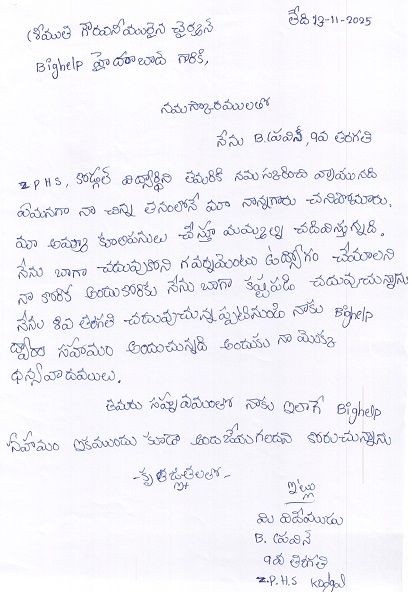 తేది 12-11-2025
శ్రీమతి గౌరవనీయురైన ఛైర్మన్
Bighelp హైదరాబాద్ గారికి,
నమస్కారములతో
నేను B. ప్రవీన్, 9వ తరగతి
Z.P.H.S, కొడ్గల్ విద్యార్థిని తమరికి నమస్కరించి వ్రాయునది
ఏమనగా నా చిన్న తనంలోనే మా నాన్నగారు చనిపోయారు.
మా అమ్మ కూలిపనులు చేస్తూ మమ్మల్ని చదివిస్తున్నది.
నేను బాగా చదువుకొని గవర్నమెంటు ఉద్యోగం చేయాలని
నా కోరిక అందుకొరకు నేను బాగా కష్టపడి చదువుచున్నాను
నేను 8వ తరగతి చదువుచున్నప్పటినుండి నాకు Bighelp
ద్వారా సహాయం అందుచున్నది అందుకు నా యొక్క
ధన్యవాదములు.
తమరు సహృదయముతో నాకు ఇలాగే Bighelp
సహాయం ఇకముందు కూడా అందజేయగలరని కోరుచున్నాను
-కృతజ్ఞతలతో-
ఇట్లు
మీ విధేయుడు
B. ప్రవీన్
9వ తరగతి
Z.P.H.S Kodgal